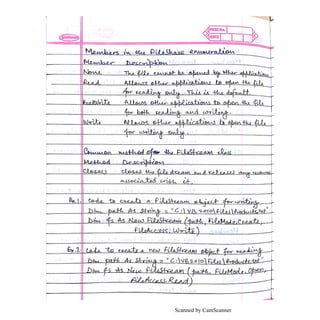 Members in the FileShare enumeration
Member Description
None The file cannot be opened by other applications
Read Allows other applications to open the file
for reading only. This is the default
ReadWrite Allows other applications to open the file
for both reading and writing.
Write Allows other applications to open the file
for writing only.
Common method of the FileStream class
Method Description
Close() Closes the file stream and releases any
associated with it.
Ex.1. Code to create a FileStream object for writing
Dim path As String = "C:\VB 2010\Files\Products.txt"
Dim fs As New FileStream (path, FileMode.Create,
FileAccess.Write)
Ex.2 Code to create a new FileStream object for reading
Dim path As String = "C:\VB 2010\Files\Products.txt
Dim fs As New FileStream (path, FileMode.Open,
FileAccess.Read)
Scanned by CamScanner